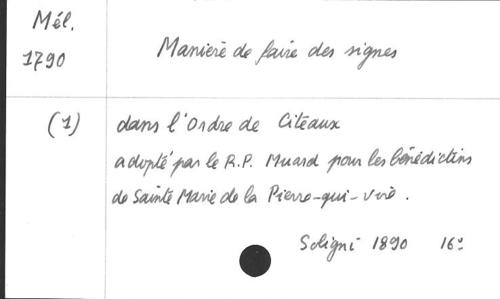 Mél.
1790
Manière de faire des signes
(1)
dans l'Ordre de Citeaux
adopté par le R.P. Muard pour les bénédictins
de Sainte Marie de la Pierre-qui-Vire.
Soligni 1890 16°